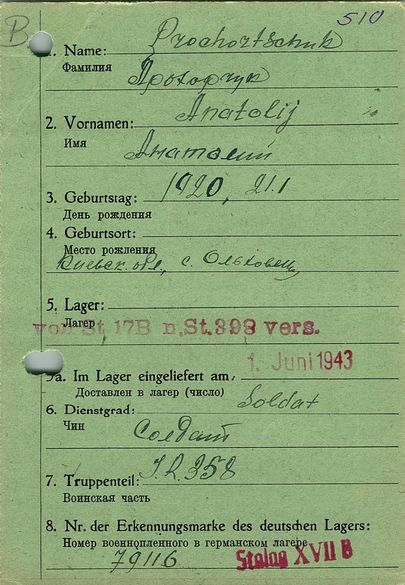 B
510
1. Name: Prochortschuk
Фамилия Прохорчук
2. Vornamen: Anatolij
Имя Анатолий
3. Geburtstag: 1920, 21.1
День рождения
4. Geburtsort:
Место рождения
Киевск. обл., с. Ольховец
5. Lager:
Лагер
von St 17B n. St. 398 vers.
1. Juni 1943
5a. Im Lager eingeliefert am:
Доставлен в лагер (число)
6. Dienstgrad: Soldat
Чин Солдат
7. Truppenteil: I.R. 358
Воинская часть
8. Nr. der Erkennungsmarke des deutschen Lagers:
Номер военнопленного в германском лагере
79116 Stalag XVII B